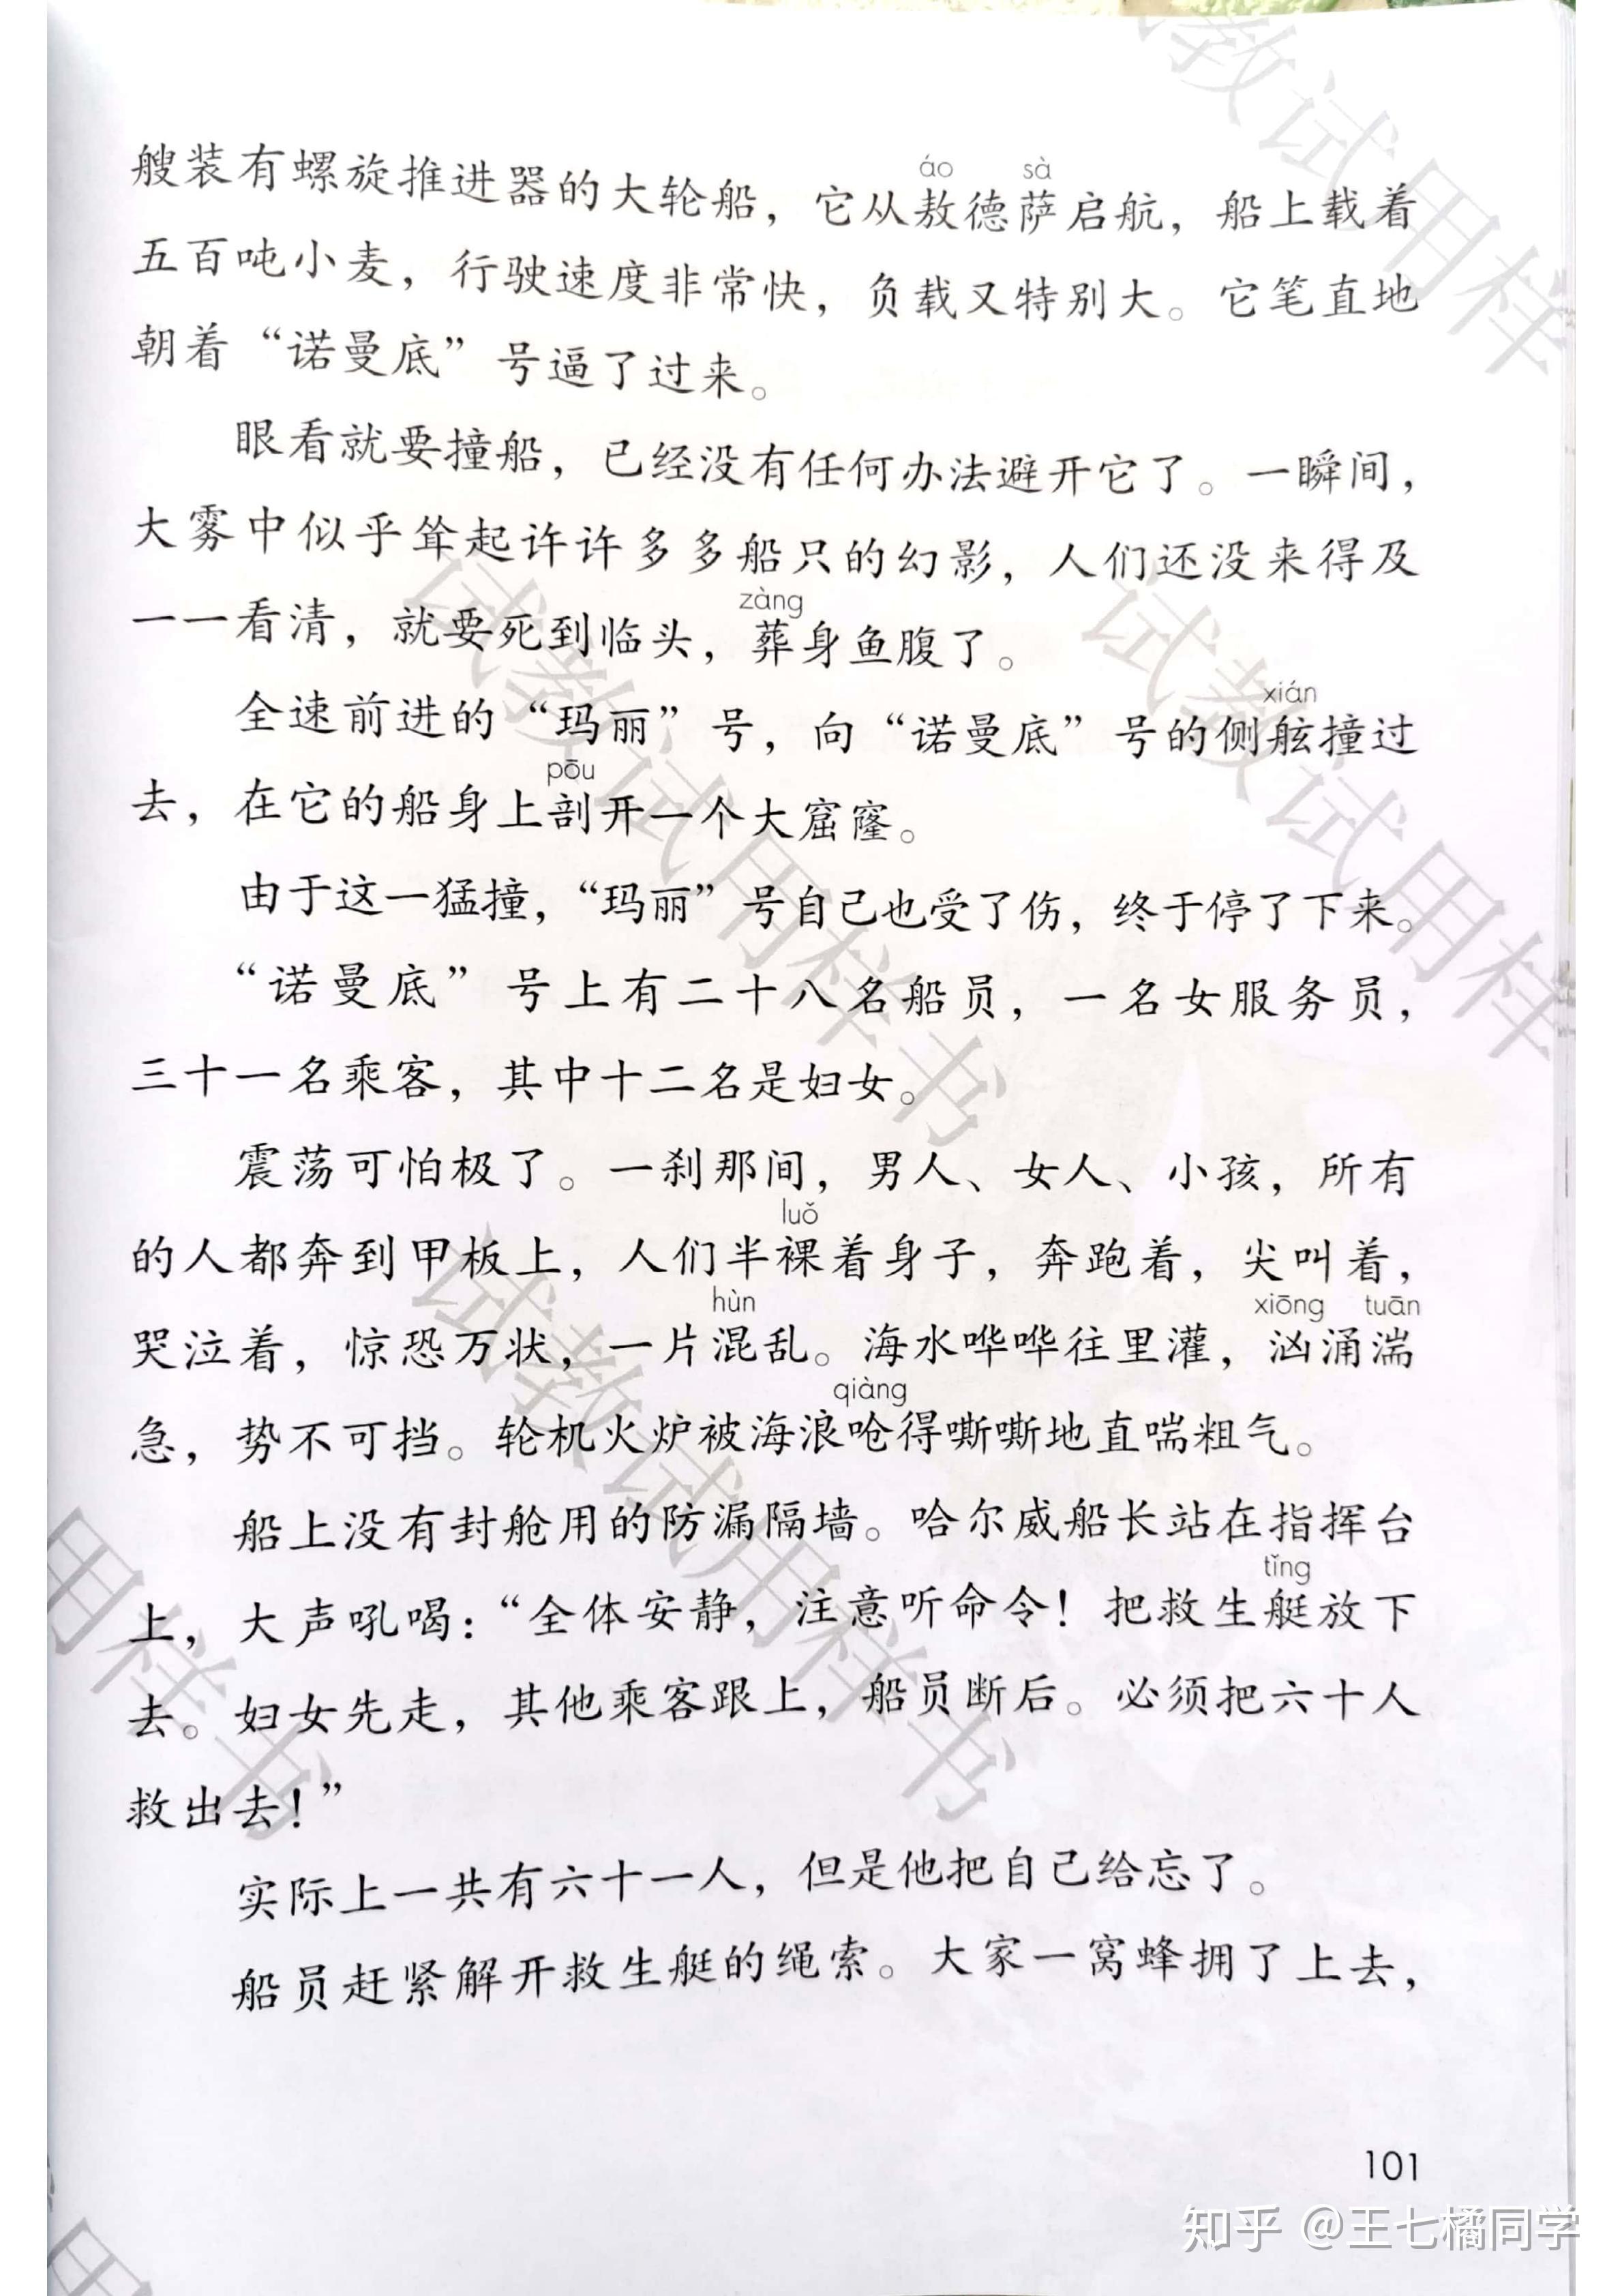 艘装有螺旋推进器的大轮船，它从敖德萨启航，船上载着
áo sà
五百吨小麦，行驶速度非常快，负载又特别大。它笔直地
朝着“诺曼底”号逼了过来。
眼看就要撞船，已经没有任何办法避开它了。一瞬间，
大雾中似乎耸起许许多多船只的幻影，人们还没来得及
zàng
一一看清，就要死到临头，葬身鱼腹了。
xián
全速前进的“玛丽”号，向“诺曼底”号的侧舷撞过
pōu
去，在它的船身上剖开一个大窟窿。
由于这一猛撞，“玛丽”号自己也受了伤，终于停了下来。
“诺曼底”号上有二十八名船员，一名女服务员，
三十一名乘客，其中十二名是妇女。
震荡可怕极了。一刹那间，男人、女人、小孩，所有
luǒ
的人都奔到甲板上，人们半裸着身子，奔跑着，尖叫着，
hùn xiōng tuān
哭泣着，惊恐万状，一片混乱。海水哗哗往里灌，汹涌湍
qiàng
急，势不可挡。轮机火炉被海浪呛得嘶嘶地直喘粗气。
船上没有封舱用的防漏隔墙。哈尔威船长站在指挥台
tǐng
上，大声吼喝：“全体安静，注意听命令！把救生艇放下
去。妇女先走，其他乘客跟上，船员断后。必须把六十人
救出去！”
实际上一共有六十一人，但是他把自己给忘了。
船员赶紧解开救生艇的绳索。大家一窝蜂拥了上去，
101
知乎 @王七橘同学
试教试用样书
试教试用样
试教试用样书
教试用样
用样书